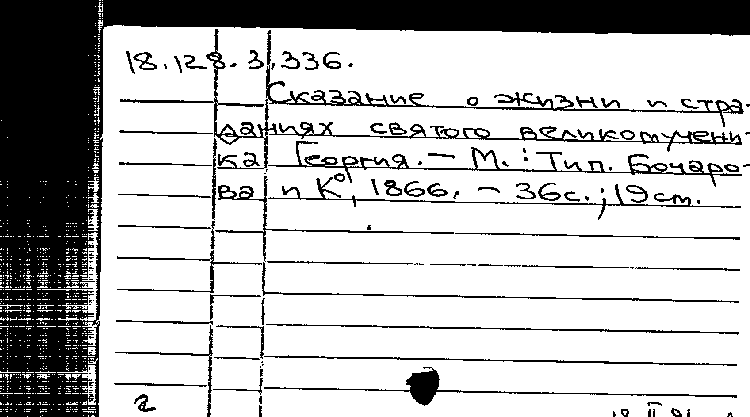 18.128.3.336.
Сказание о жизни и стра-
даниях святого великомучени-
ка Георгия. – М. : Тип. Бочаро-
ва и К°, 1866. – 36с.; 19 см.
2